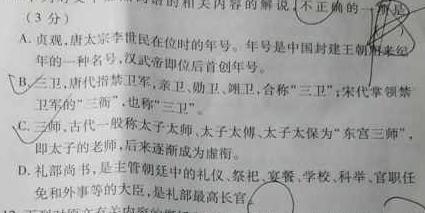 的相关内容的解说,不正确的一
(3分)
A. 贞观,唐太宗李世民在位时的年号。年号是中国封建王朝用来纪
年的一种名号,汉武帝即位后首创年号。
B. 三卫,唐代指禁卫军,亲卫、勋卫、翊卫,合称“三卫”;宋代掌领禁
卫军的“三衙”,也称“三卫”。
C. 三师,古代一般称太子太师、太子太傅、太子太保为“东宫三师”,
即太子的老师,后来逐渐成为虚衔。
D. 礼部尚书,是主管朝廷中的礼仪、祭祀、宴餐、学校、科举、官职任
免和外事等的大臣,是礼部最高长官。